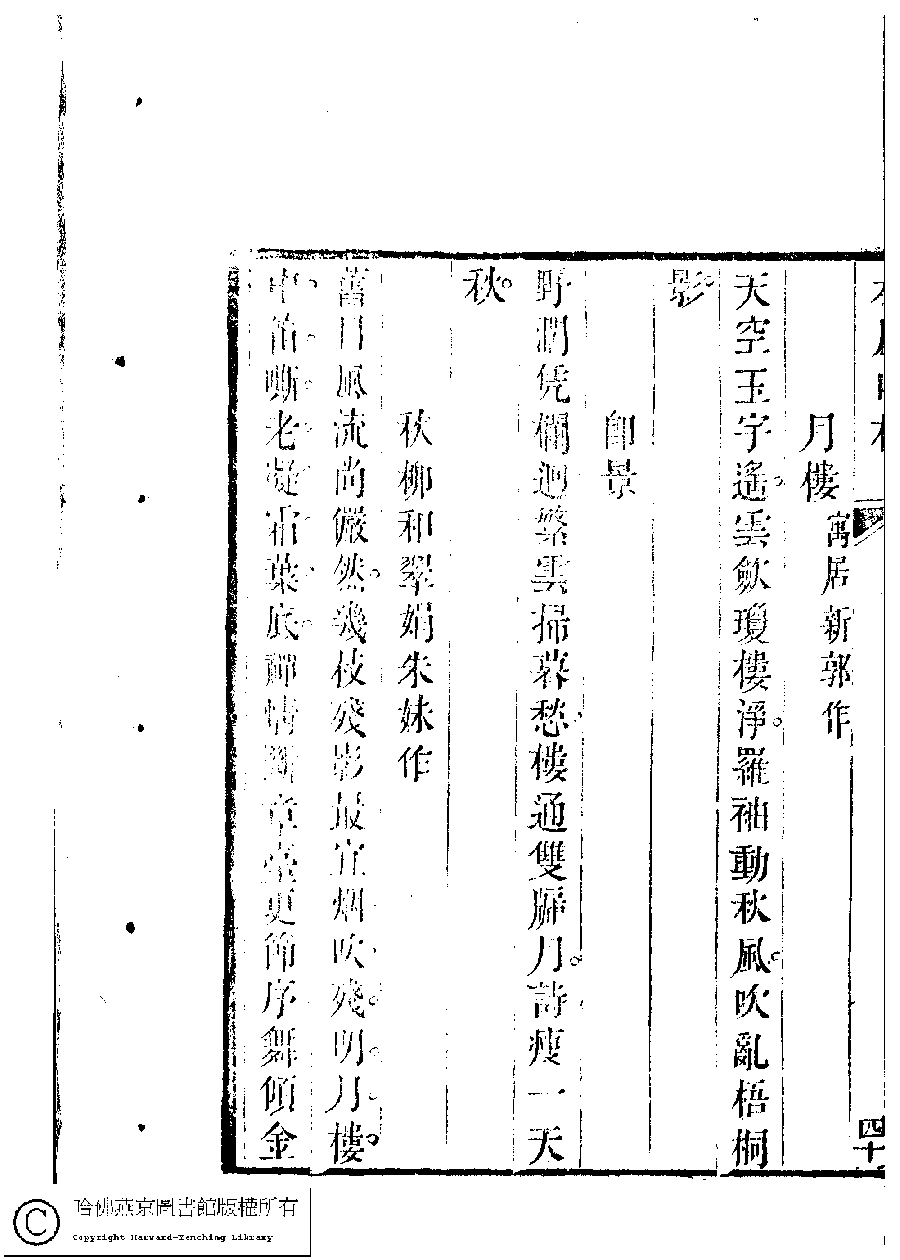 月樓寓居新郭作
天空玉宇遙雲歛瓊樓淨羅袖動秋風吹亂梧桐
影
卽景
野濶凭欄迥繁雲掃暮愁樓通雙牖月詩瘦一天
秋
秋柳和翠娟朱妹作
舊日風流尚儼然幾枝殘影最宜烟吹殘明月樓
中笛嘶老凝霜葉底蟬情斷章臺更節序舞傾金
四十
哈佛燕京圖書館版權所有
Copyright Harvard-Yenching Library